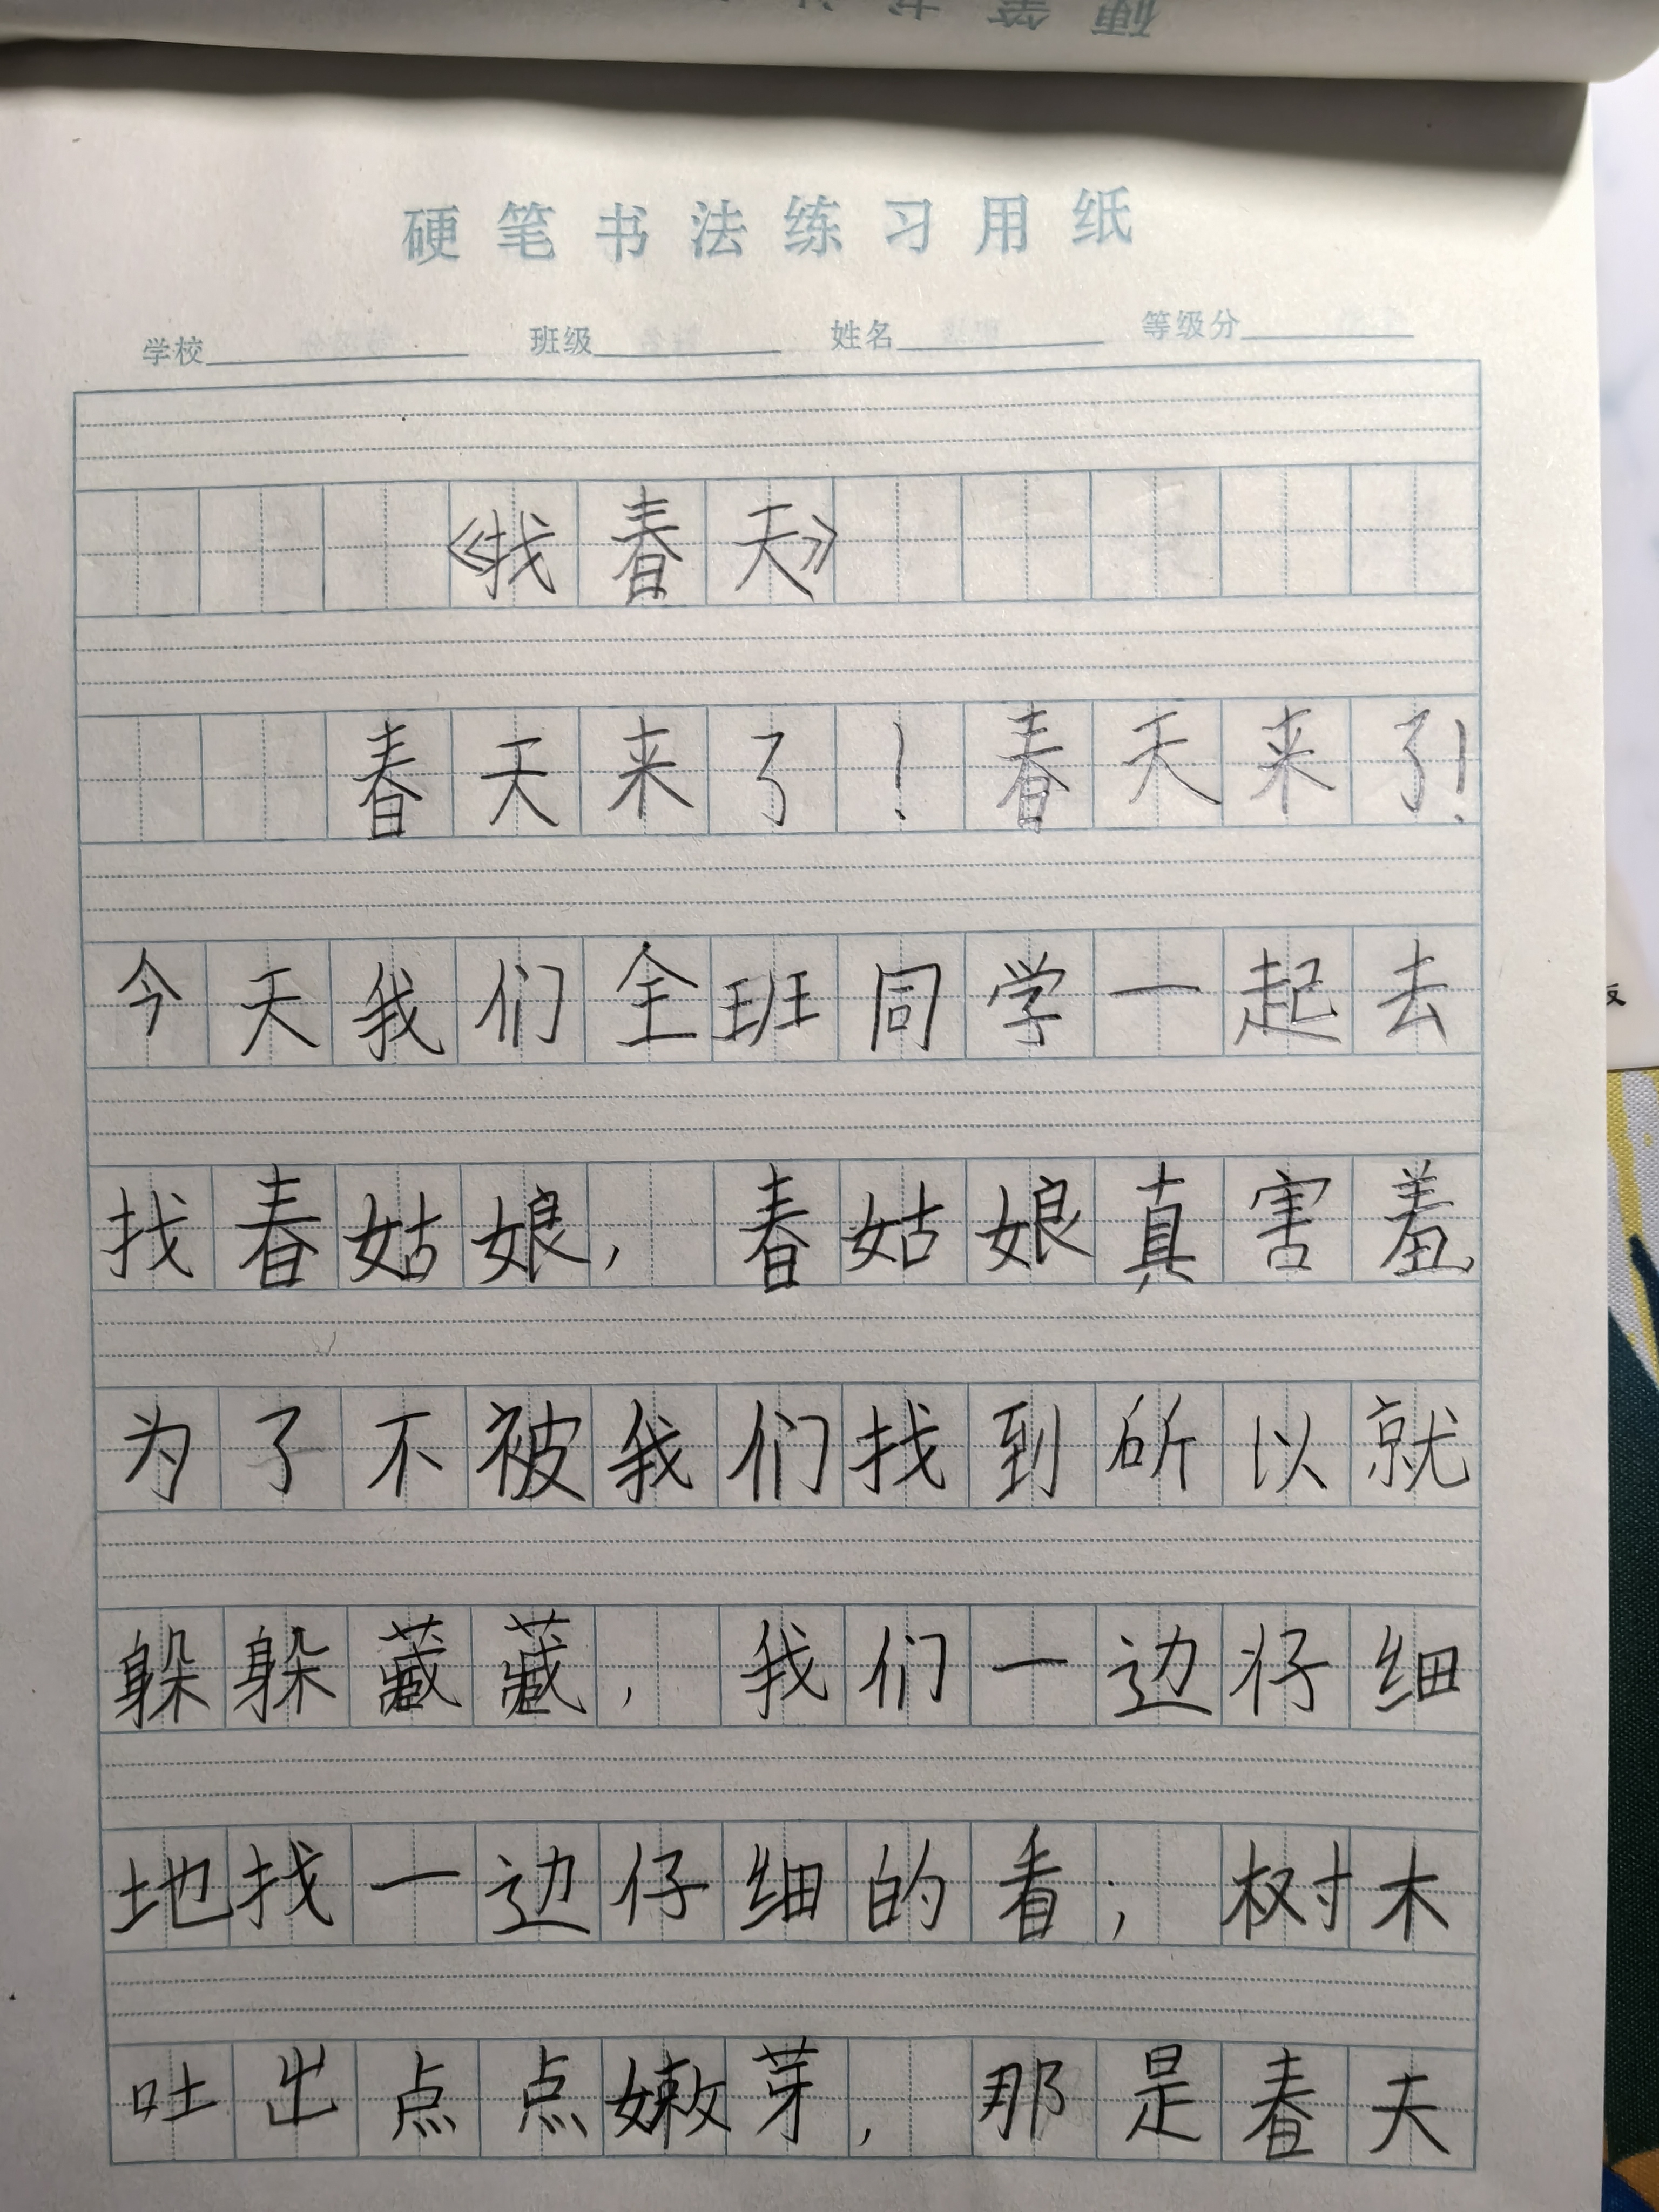 硬笔书法练习用纸
学校 班级 姓名 等级分
《找春天》
春天来了！春天来了！
今天我们全班同学一起去
找春姑娘，春姑娘真害羞，
为了不被我们找到所以就
躲躲藏藏，我们一边仔细
地找一边仔细的看；树木
吐出点点嫩芽，那是春天